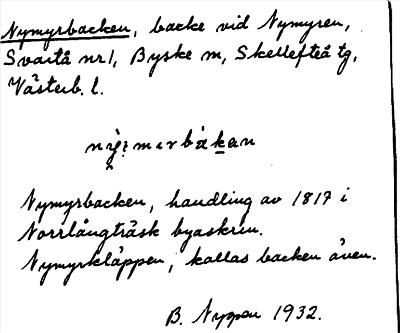 Nymyrbacken, backe vid Nymyren,
Svartå nr 1, Byske sn, Skellefteå tg,
Västerb. l.
Nymyrbacken, handling av 1817 i
Norrlångträsk byaskrin.
Nymyrkläppen, kallas backen även.
B. Nyppen 1932.